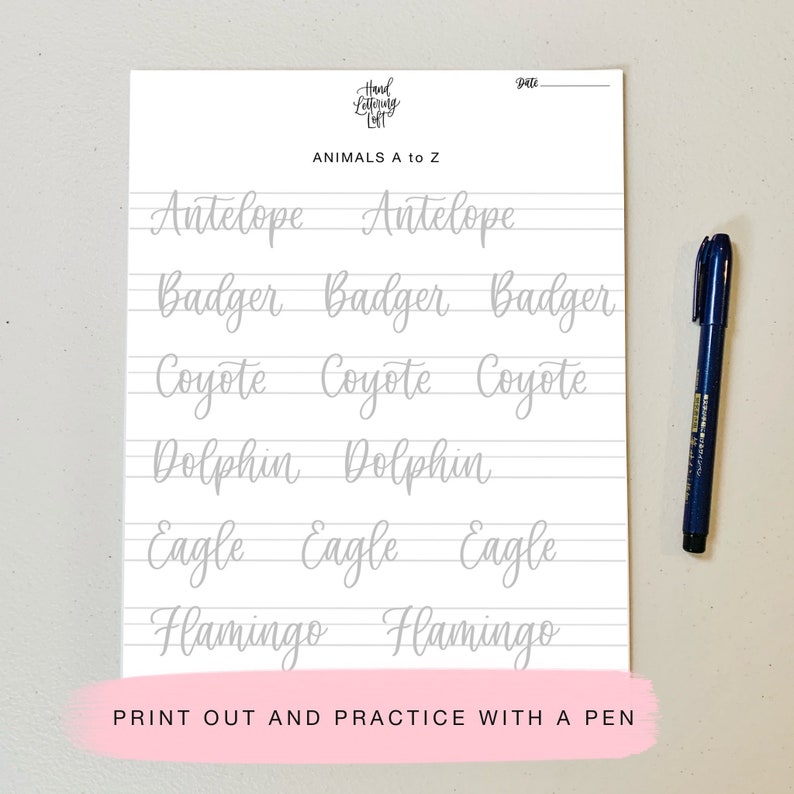 Hand
Lettering
Loft
Date
ANIMALS A to Z
Antelope Antelope
Badger Badger Badger
Coyote Coyote Coyote
Dolphin Dolphin
Eagle Eagle Eagle
Flamingo Flamingo
PRINT OUT AND PRACTICE WITH A PEN